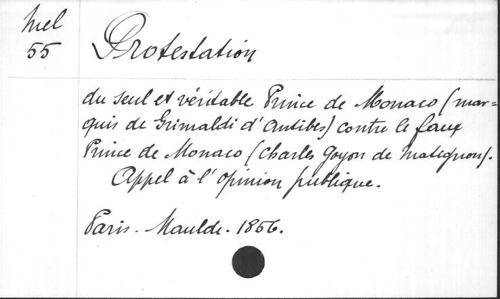 Mel
55
Protestation
du seul et véritable Prince de Monaco (mar=
quis de Grimaldi d'Antibes) contre le faux
Prince de Monaco (Charles Goyon de Matignon).
Appel à l'opinion publique.
Paris. Maulde. 1866.